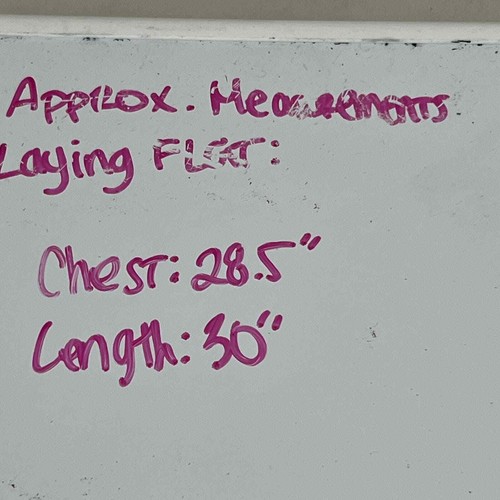 Approx. Measurements
Laying FLAT:
Chest: 28.5"
Length: 30"